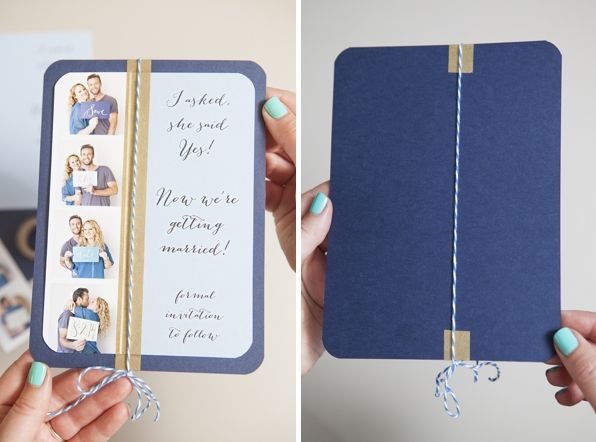 Save
I asked,
she said
Yes!
Now we're
getting
married!
formal
invitation
to follow